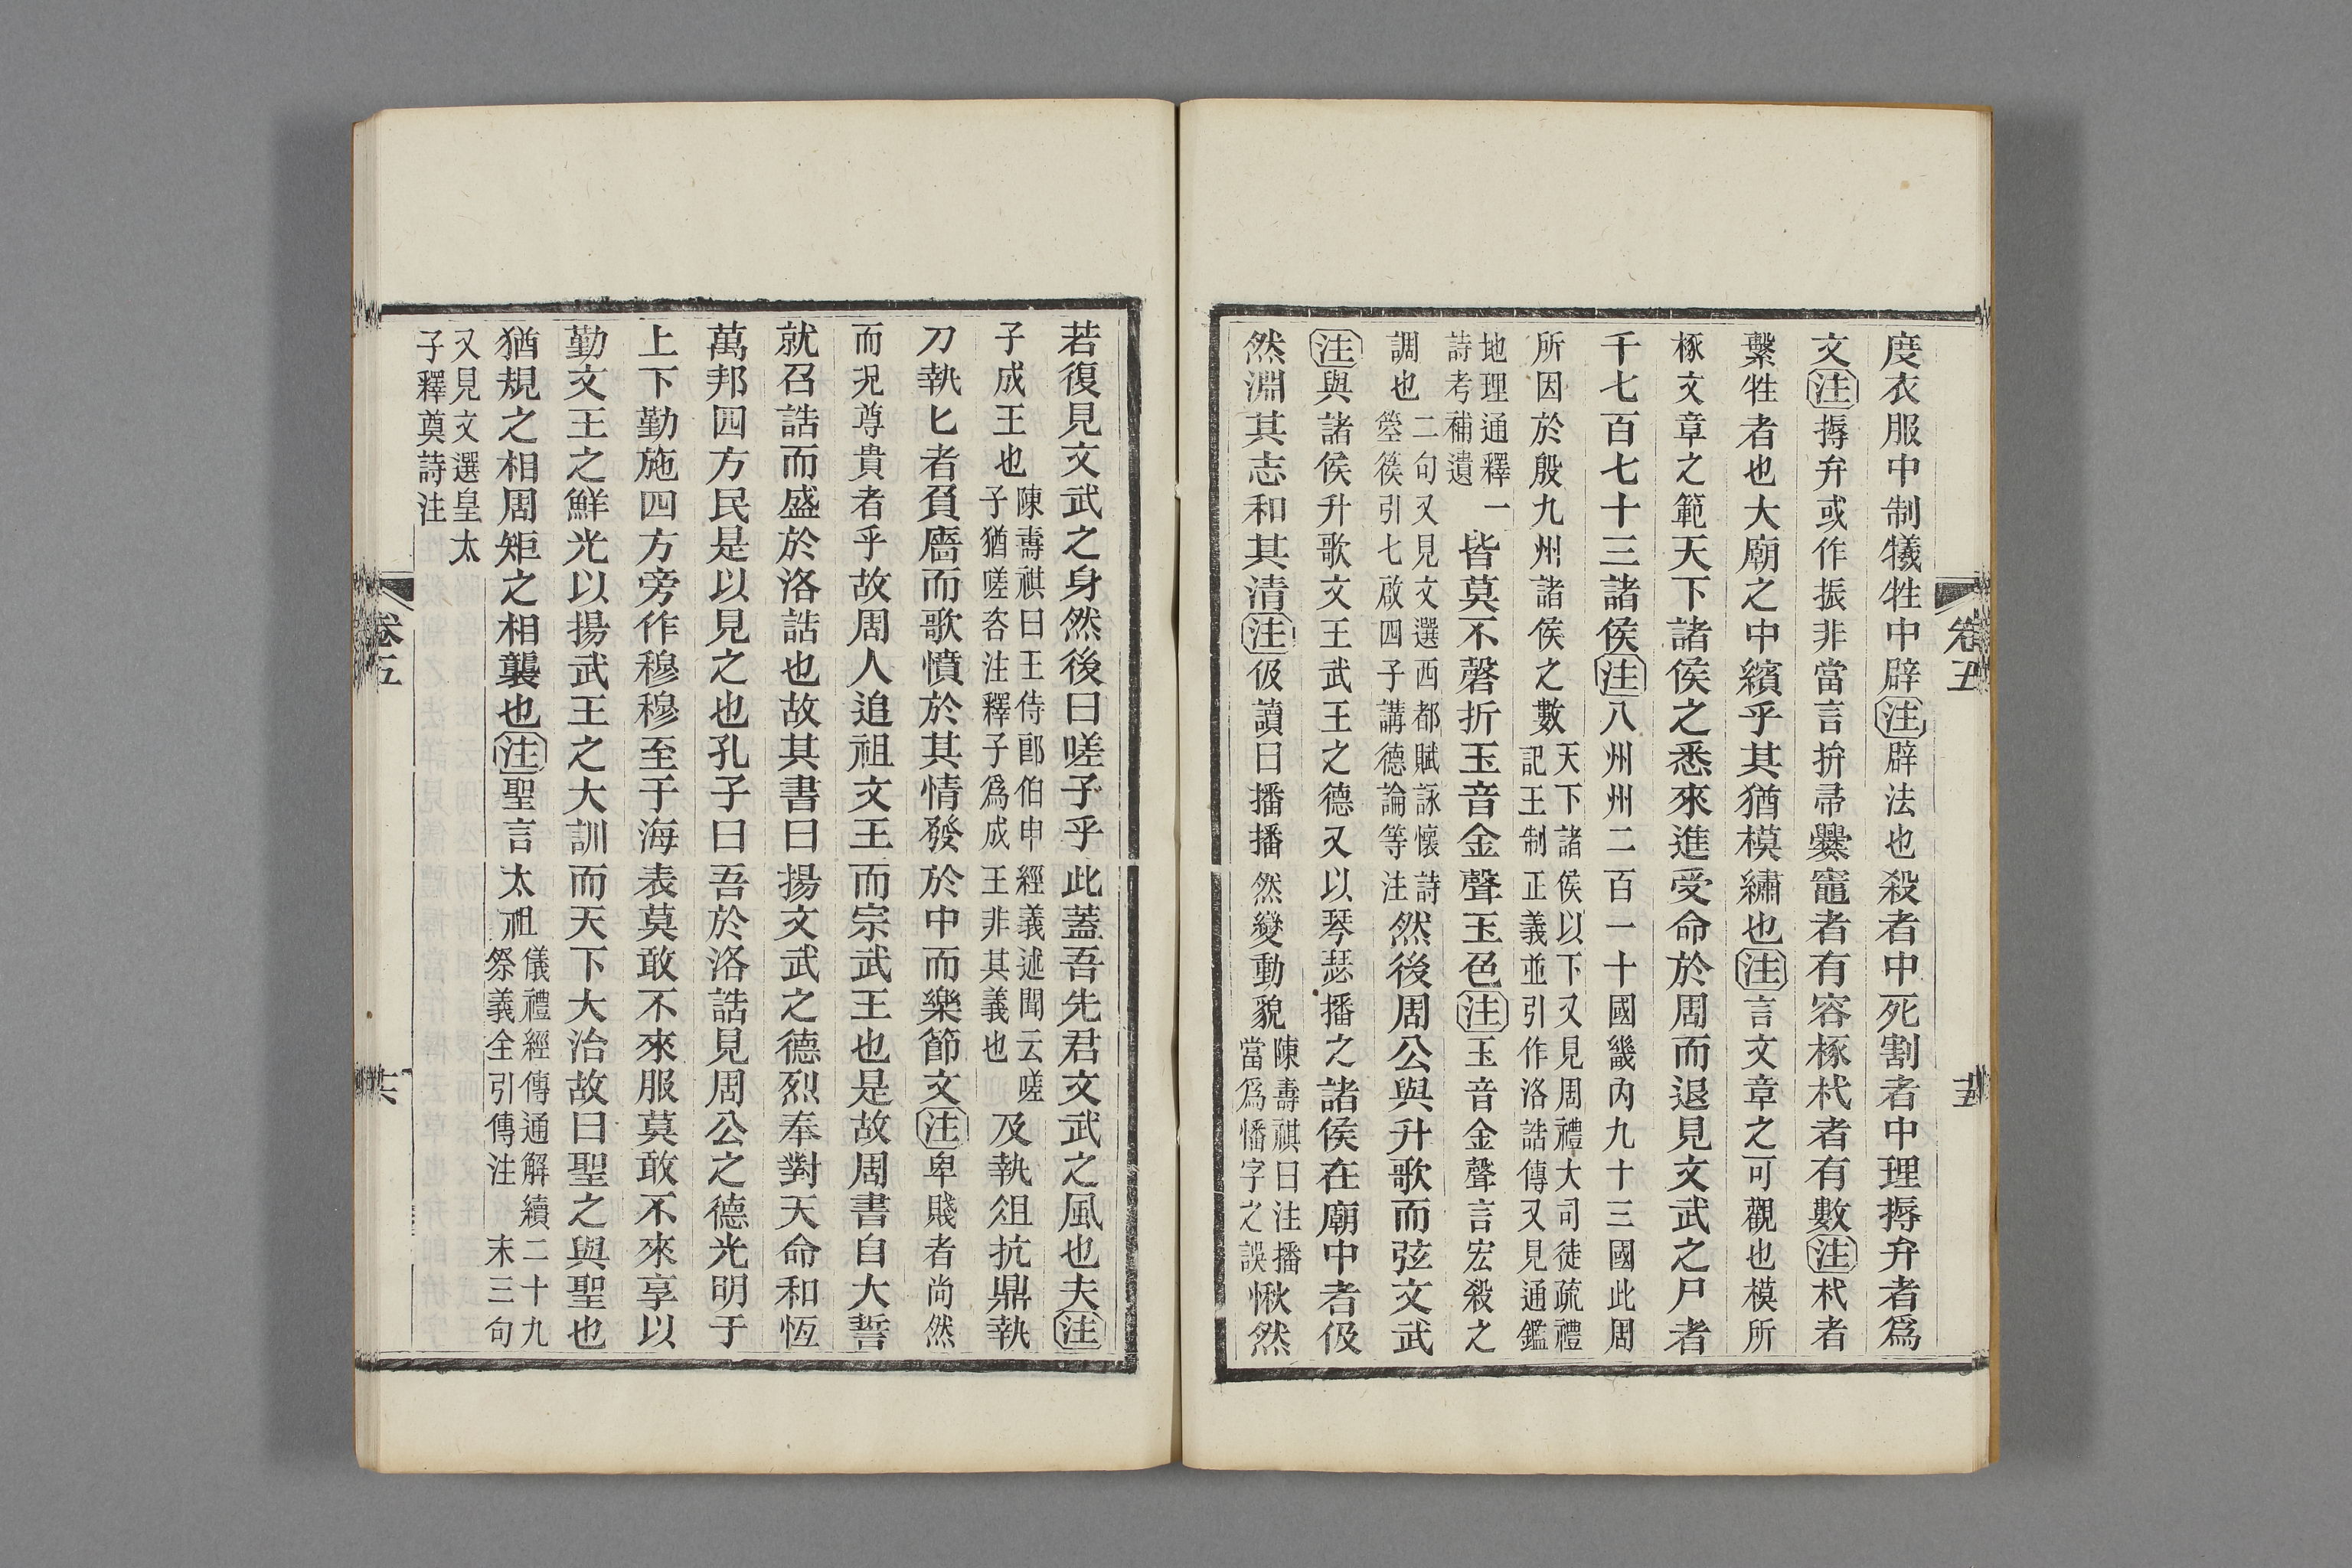 度衣服中制犧牲中辟注辟法也殺者中死割者中理搙弁者爲
文注搙弁或作振非當言拚帚爨竈者有容椓杙者有數注杙者
繫牲者也大廟之中繽乎其猶模繡也注言文章之可觀也模所
椓文章之範天下諸侯之悉來進受命於周而退見文武之尸者
千七百七十三諸侯注八州州二百一十國畿內九十三國此周
所因於殷九州諸侯之數天下諸侯以下又見周禮大司徒疏禮
記王制正義並引作洛誥傳又見通鑑
地理通釋一
詩考補遺
皆莫不磬折玉音金聲玉色注玉音金聲言宏殺之
調也二句又見文選西都賦詠懷詩
箜篌引七啟四子講德論等注然後周公與升歌而弦文武
注與諸侯升歌文王武王之德又以琴瑟播之諸侯在廟中者伋
然淵其志和其清注伋讀曰播播然變動貌陳壽祺曰注播
當爲憣字之誤愀然
卷五
十五
若復見文武之身然後曰嗟子乎此蓋吾先君文武之風也夫注
子成王也陳壽祺曰王侍郎伯申經義述聞云嗟
子猶嗟咨注釋子爲成王非其義也及執俎抗鼎執
刀執匕者負廧而歌憤於其情發於中而樂節文注卑賤者尚然
而況尊貴者乎故周人追祖文王而宗武王也是故周書自大誓
就召誥而盛於洛誥也故其書曰揚文武之德烈奉對天命和恆
萬邦四方民是以見之也孔子曰吾於洛誥見周公之德光明于
上下勤施四方旁作穆穆至于海表莫敢不來服莫敢不來享以
勤文王之鮮光以揚武王之大訓而天下大治故曰聖之與聖也
猶規之相周矩之相襲也注聖言太祖儀禮經傳通解續二十九
祭義全引傳注末三句
又見文選皇太
子釋奠詩注
卷五
十六